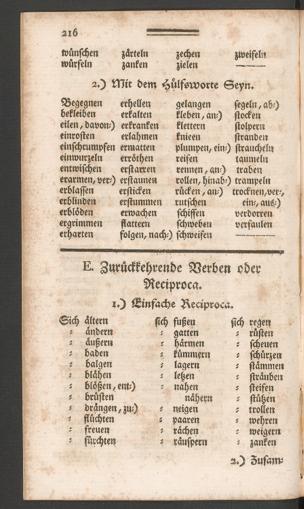 216
wünschen zärteln zechen zweifeln
würfeln zanken zielen
2.) Mit dem Hülfsworte Seyn.
Begegnen erhellen gelangen segeln, ab:)
bekleiben erkalten kleben, an:) stocken
eilen, davon:) erkranken klettern stolpern
einrosten erlahmen knieen stranden
einschrumpfen ermatten plumpen, ein:) straucheln
einwurzeln erröthen reisen taumeln
entwischen erstarren rennen, an:) traben
erarmen, ver:) erstaunen rollen, hinab:) trampeln
erblassen ersticken rücken, an:) trocknen, ver:,
erblinden erstummen rutschen ein:, aus:)
erblöden erwachen schiffen verdorren
ergrimmen flattern schweben verfaulen
erharten folgen, nach:) schweifen
E. Zurückkehrende Verben oder
Reciproca.
1.) Einfache Reciproca.
Sich ältern sich fußen sich regen
⸗ ändern ⸗ gatten ⸗ rüsten
⸗ äußern ⸗ härmen ⸗ scheuen
⸗ baden ⸗ kümmern ⸗ schürzen
⸗ balgen ⸗ lagern ⸗ stämmen
⸗ blähen ⸗ letzen ⸗ sträuben
⸗ blößen, ent:) ⸗ nahen ⸗ steifen
⸗ brüsten nähern ⸗ stützen
⸗ drängen, zu:) ⸗ neigen ⸗ trollen
⸗ flüchten ⸗ paaren ⸗ wehren
⸗ freuen ⸗ rächen ⸗ weigern
⸗ fürchten ⸗ räuspern ⸗ zanken
2.) Zusam⸗